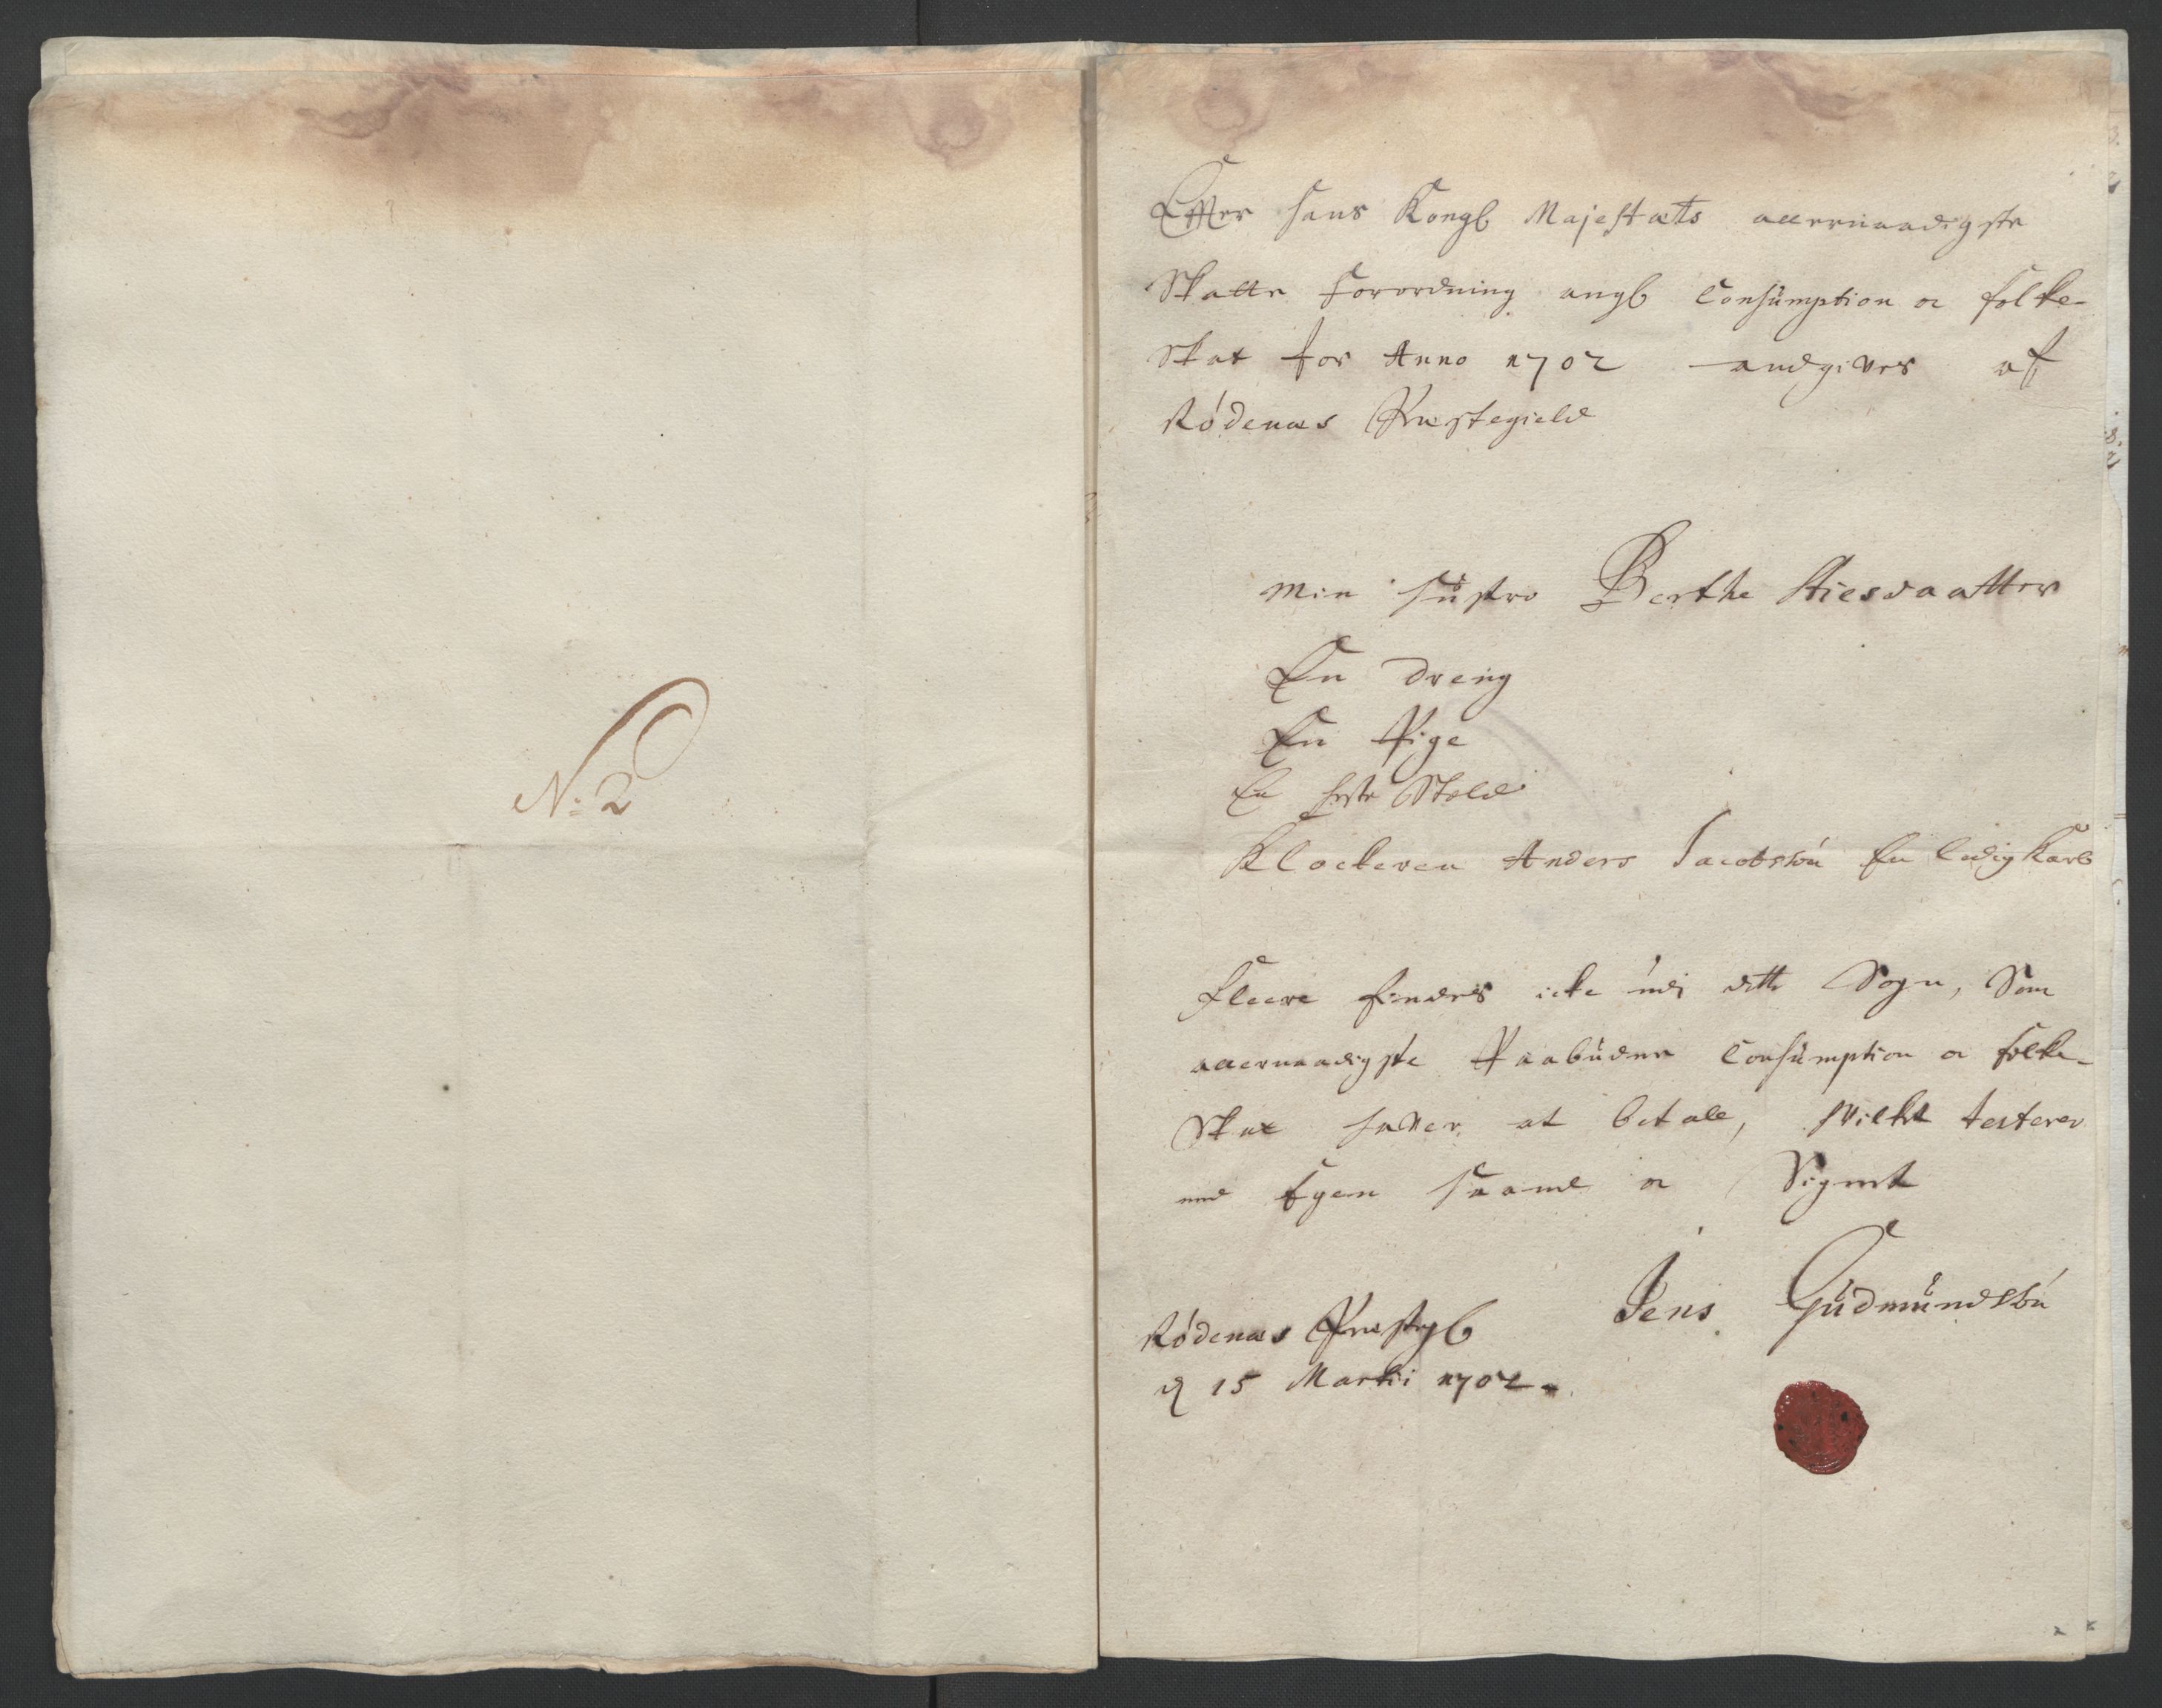 N: 2
Effter Hans Kongl Majestæts allernaadigste
Skatte Forordning angl Consumption oc folke-
Skat for Anno 1702 andgives af
Rødenæs Præstegield
Min Hustro Berthe Stiesdaatter
En Dreng
En Pige
En Stold
Klockeren Anders Jacobsøn En ledig Karl
Fleere findes icke udi dette Sogn, Som
allernaadigste Paabudne Consumption oc folke-
Skat hafver at betale, hvilket testerer
med Egen Haand oc Signet
Jens Gudmundsøn
Rødenæs Præstgl
d 15 Martii 1702.